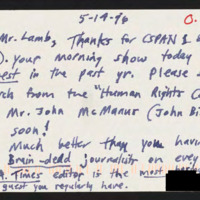 5-14-96
O.
Mr. Lamb, Thanks for CSPAN 1
). your morning show today
est in the past yr. Please
rch from the "Human Rights C
Mr. John McManus (John Bi
soon!
Much better than you havin
Brain-dead journalists on every
A. Times editor is the most
guest you regularly have.